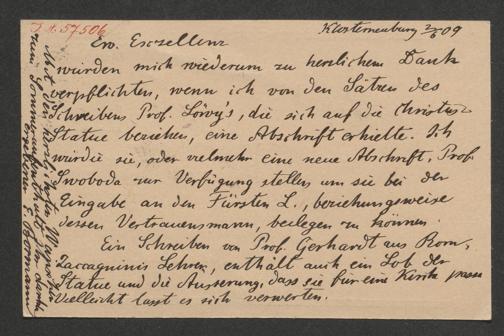 I.N. 57506
Klosterneuburg 2/6 09
Ew. Exzellenz
würden mich wiederum zu herzlichem Dank
verpflichten, wenn ich von den Sätzen des
Schreibens Prof. Löwy's, die sich auf die Christus-
Statue beziehen, eine Abschrift erhielte. Ich
würde sie, oder vielmehr eine neue Abschrift, Prof.
Swoboda zur Verfügung stellen um sie bei der
Eingabe an den Fürsten L., beziehungsweise
dessen Vertrauensmann, beilegen zu können.
Ein Schreiben von Prof. Gerhardt aus Rom,
Zaccagninis Lehrer, enthält auch ein Lob der
Statue und die Äusserung, dass sie für eine Kirche passe
Vielleicht lässt es sich verwerten.
Mit den besten Wünschen
zum Sommeraufenthalt Ihr dankb.
ergebener E. Bormann